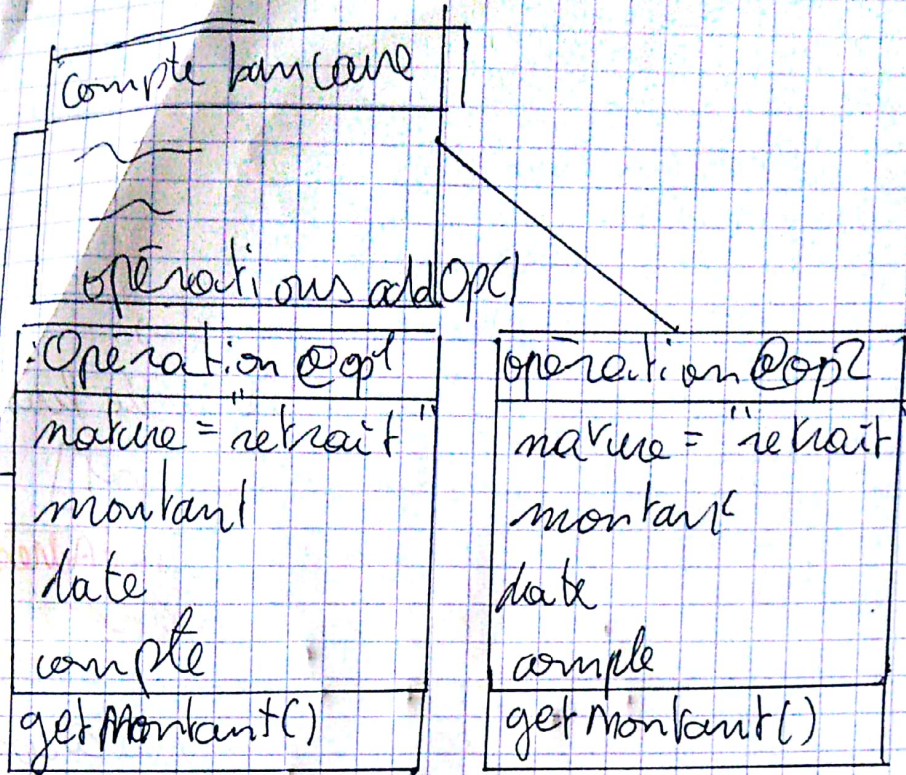 compte bancaire
opérations addOp()
:Opération @op1
nature = "retrait"
montant
date
compte
getMontant()
opération @op2
nature = "retrait
montant
date
compte
getMontant()